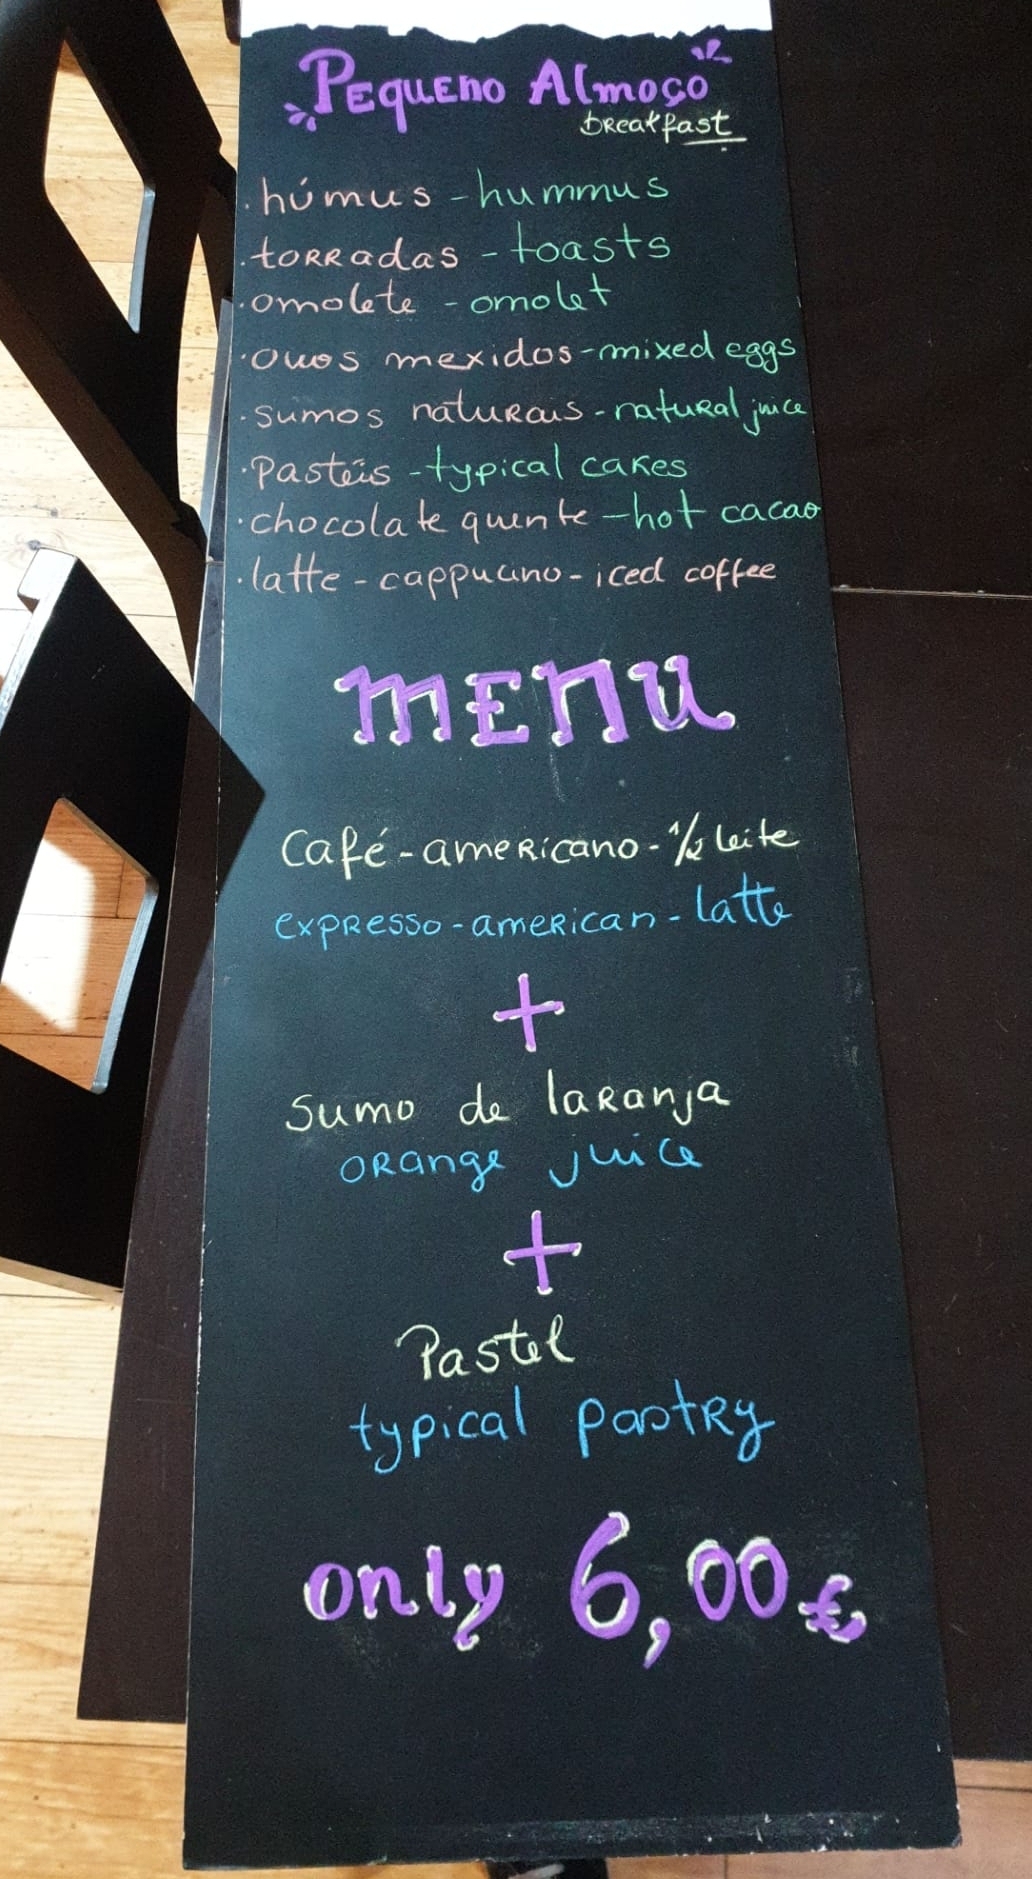 Pequeno Almoço
breakfast
· húmus - hummus
· torradas - toasts
· omolete - omolet
· ovos mexidos - mixed eggs
· sumos naturais - natural juice
· Pastéis - typical cakes
· chocolate quente - hot cacao
· latte - cappucino - iced coffee
MENU
Café - americano - 1/2 leite
expresso - american - latte
+
Sumo de laranja
orange juice
+
Pastel
typical pastry
only 6,00€